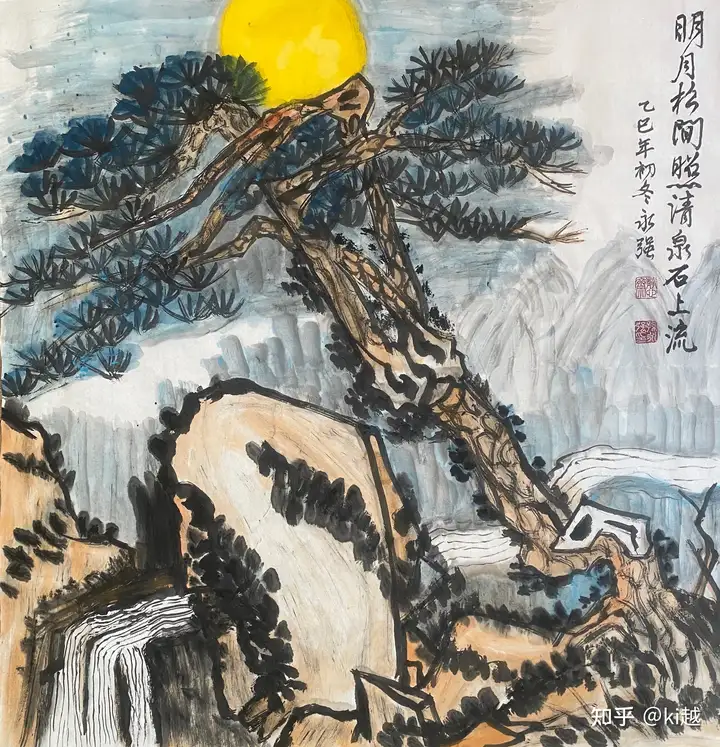 明月松间照清泉石上流
乙巳年初冬永强
知乎 @ki越